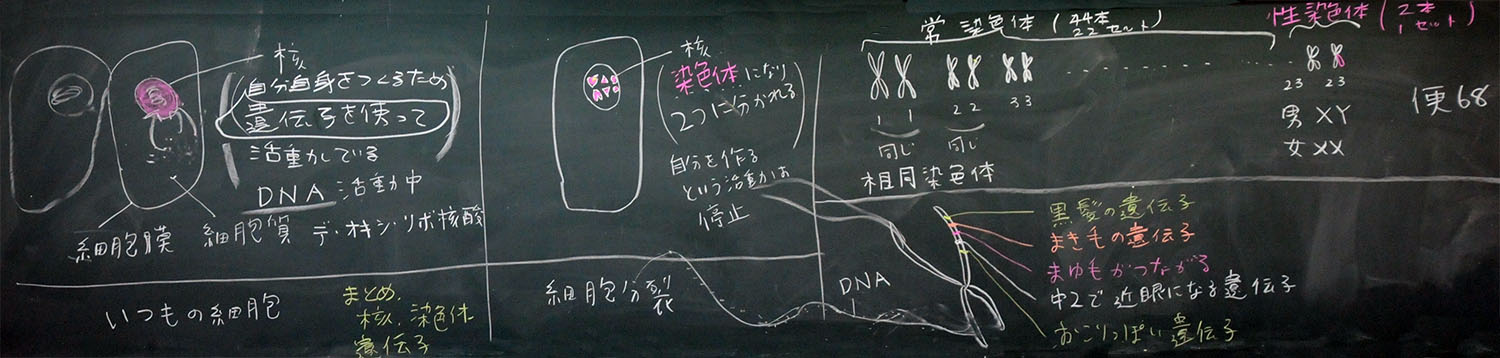 核
自分自身をつくるため
遺伝子を使って
活動している
DNA 活動中
デ・オキシ・リボ核酸
細胞膜
細胞質
いつもの細胞
まとめ.
核.染色体
遺伝子
核
染色体になり
2つに分かれる
自分を作る
という活動は
停止
細胞分裂
常染色体(44本
22セット)
1 1
2 2
3 3
同じ
同じ
相同染色体
性染色体(2本
1セット)
23 23
男 XY
女 XX
便68
DNA
黒髪の遺伝子
まき毛の遺伝子
まゆ毛がつながる
中2で近眼になる遺伝子
おこりっぽい遺伝子